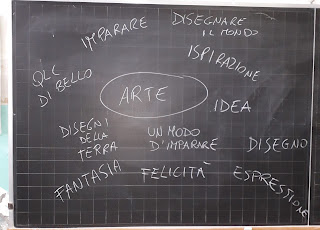 IMPARARE
DISEGNARE
IL MONDO
QLC
DI BELLO
ISPIRAZIONE
ARTE
IDEA
DISEGNI
DELLA
TERRA
UN MODO
D'IMPARARE
DISEGNO
FANTASIA
FELICITÀ
ESPRESSIONE